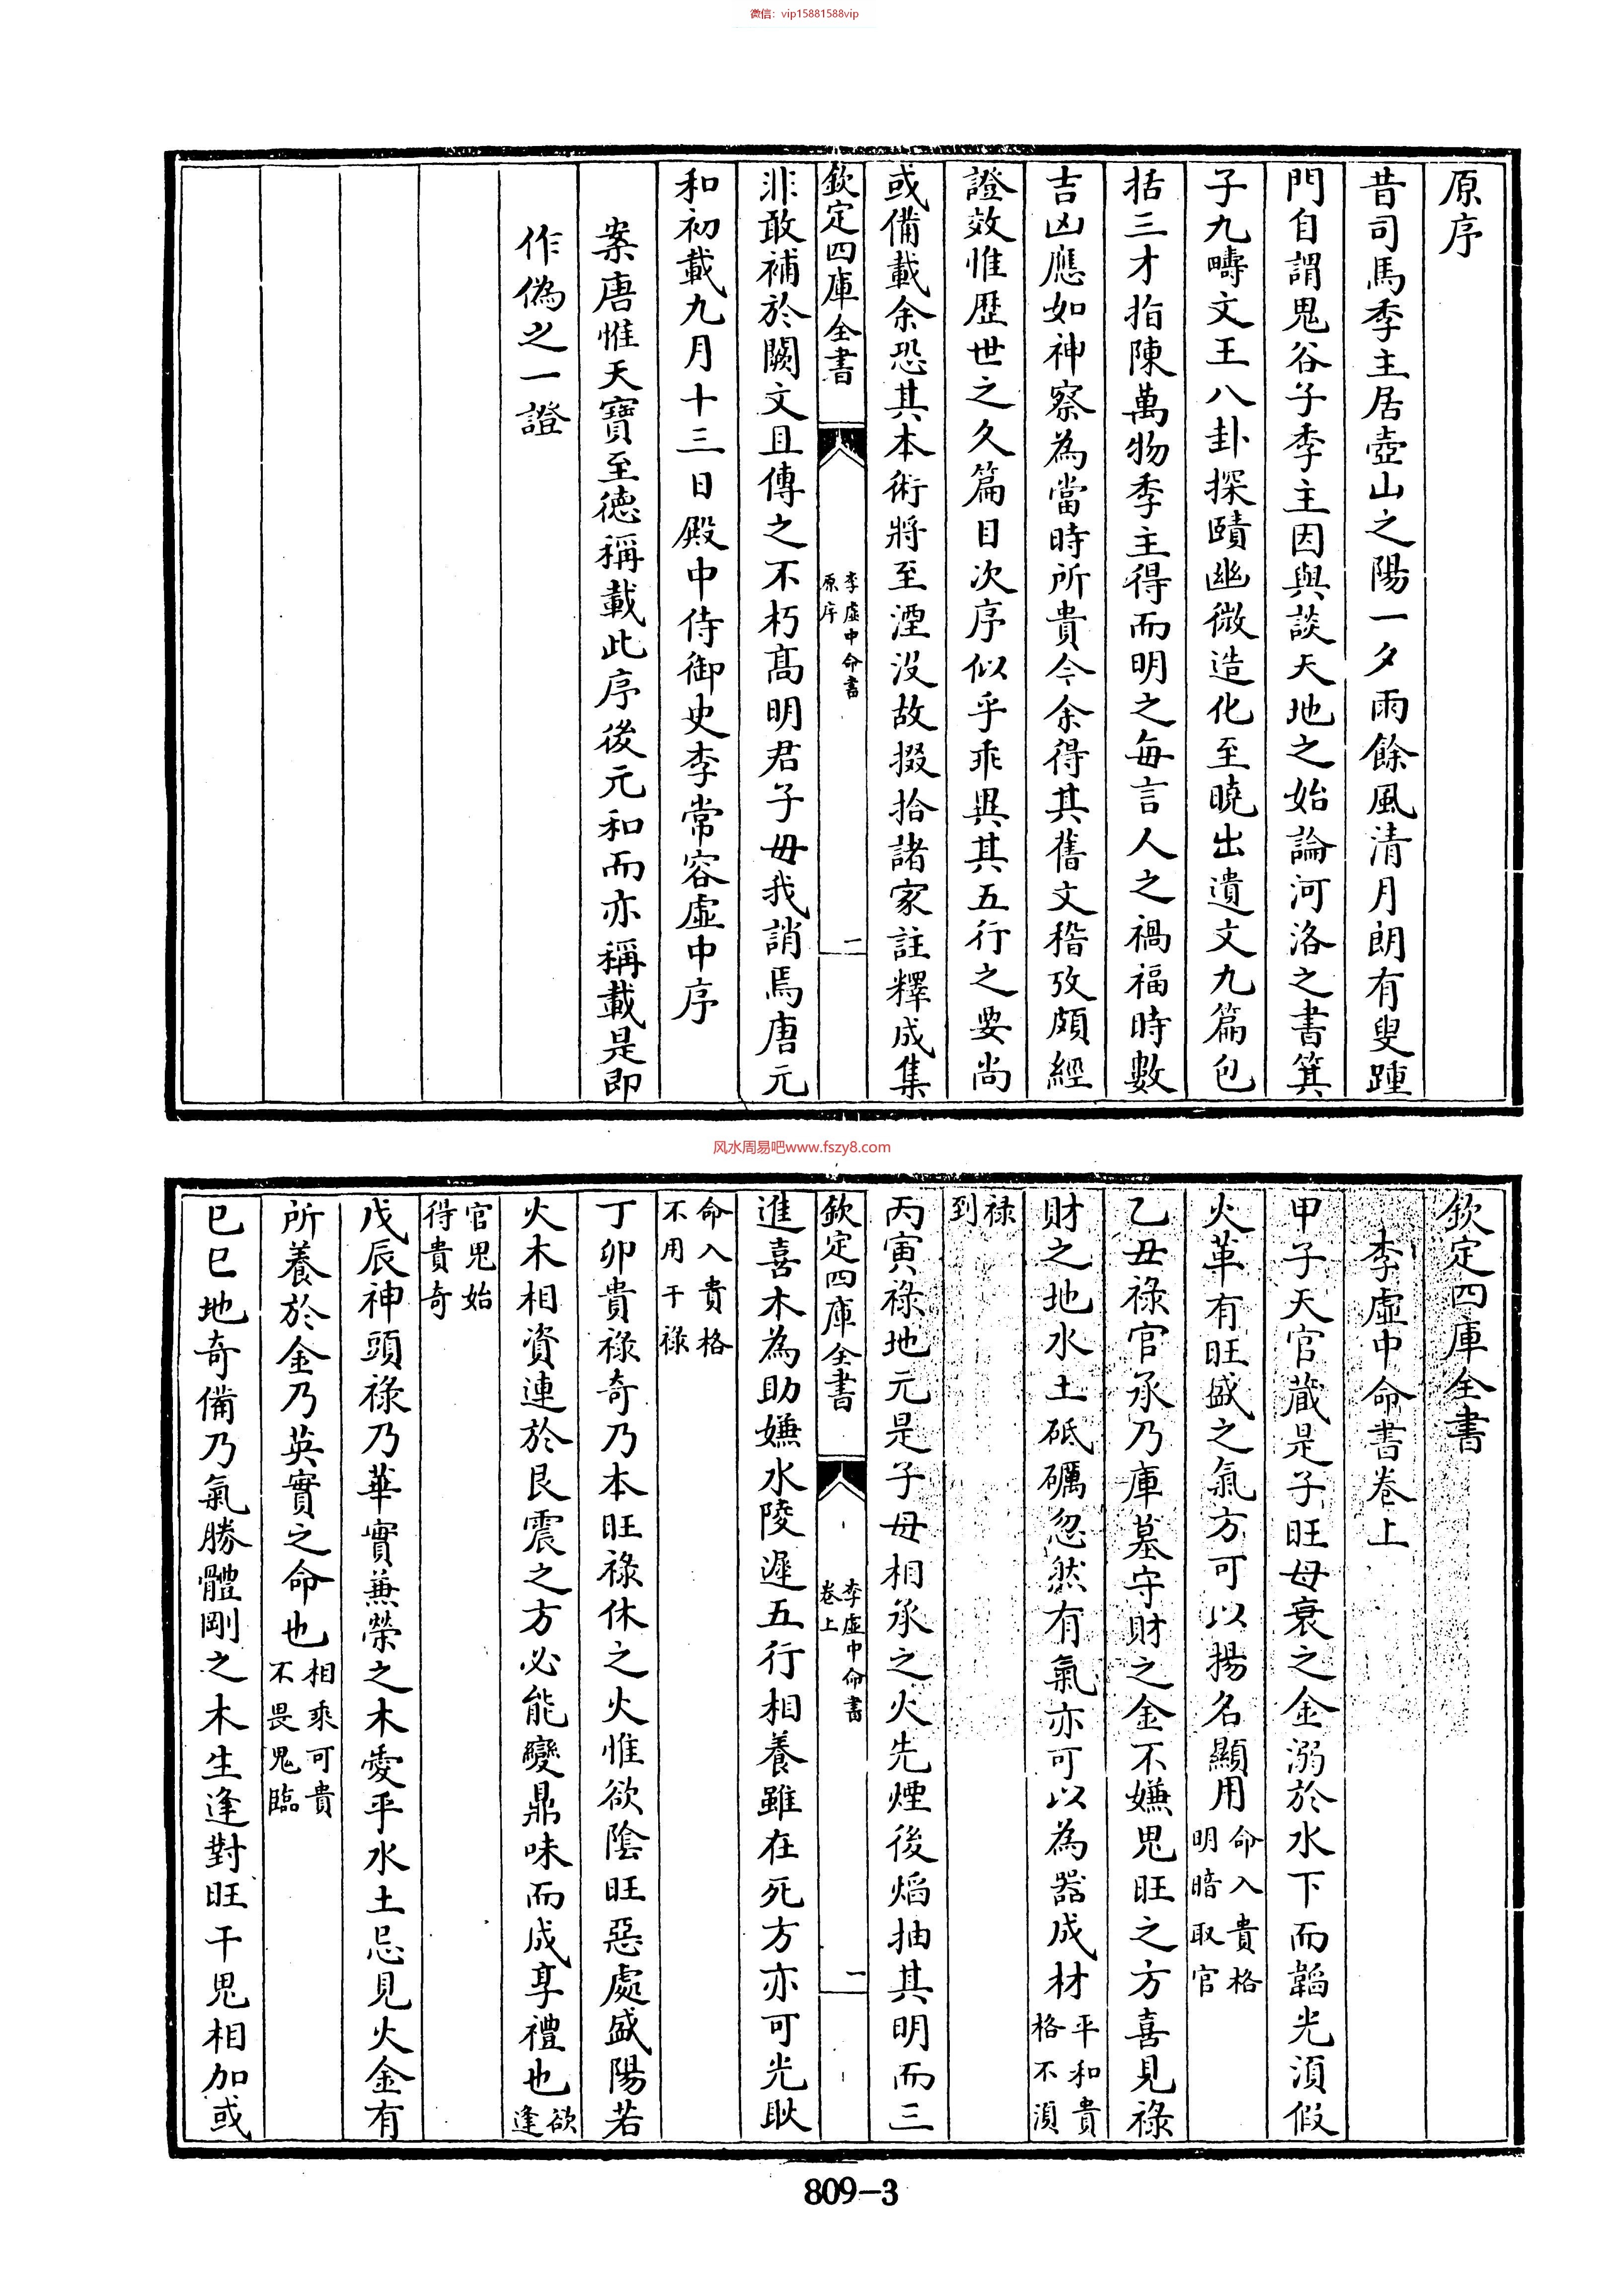 微信：vip15881588vip
原序
昔司馬季主居壺山之陽一夕雨餘風清月朗有叟踵
門自謂鬼谷子季主因與談天地之始論河洛之書箕
子九疇文王八卦探賾幽微造化至曉出遺文九篇包
括三才指陳萬物季主得而明之每言人之禍福時數
吉凶應如神察為當時所貴今余得其舊文稽攷頗經
證效惟歷世之久篇目次序似乎乖異其五行之要尚
或備載余恐其本術將至湮没故掇拾諸家註釋成集
欽定四庫全書
李虛中命書
原序
二
非敢補於闕文且傳之不朽髙明君子毋我誚焉唐元
和初載九月十三日殿中侍御史李常容虛中序
案唐惟天寶至徳稱載此序後元和而亦稱載是即
作偽之一證
风水周易吧www.fszy8.com
欽定四庫全書
李虛中命書卷上
甲子天官蔵是子旺母衰之金溺於水下而韜光湏假
火革有旺盛之氣方可以揚名顯用命入貴格
明暗取官
乙丑禄官承乃庫墓守財之金不嫌鬼旺之方喜見禄
財之地水土砥礪忽然有氣亦可以為器成材平和貴
格不湏
禄
到
丙寅禄地元是子母相承之火先煙後焰抽其明而三
欽定四庫全書
李虛中命書
卷上
一
進喜木為助嫌水陵遲五行相養雖在死方亦可光耿
命入貴格
不用干禄
丁卯貴禄奇乃本旺禄休之火惟欲陰旺惡處盛陽若
火木相資連於艮震之方必能變鼎味而成享禮也欲
逢
官鬼始
得貴奇
戊辰神頭禄乃華實兼榮之木愛乎水土忌見火金有
所養於金乃英實之命也相乘可貴
不畏鬼臨
己巳地奇備乃氣勝體剛之木生逢對旺干鬼相加或
809-3